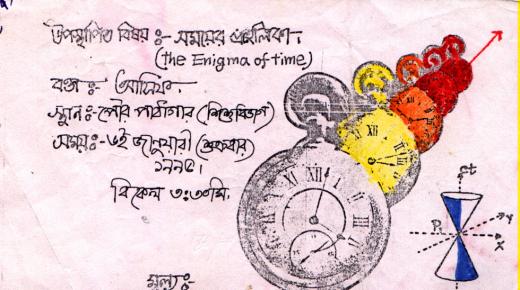 উপস্থাপিত বিষয় ঃ- সময়ের প্রহেলিকা.
(the Enigma of time)
বক্তা ঃ- আসিফ.
স্থান ঃ- পৌর পাঠাগার (শিশু বিভাগ)
সময় ঃ- ৬ই জানুয়ারী (শুক্রবার)
১৯৯৫।
বিকেল ৩:৩০মি.
মূল্য ঃ-
XII
XII
ct
P
y
x